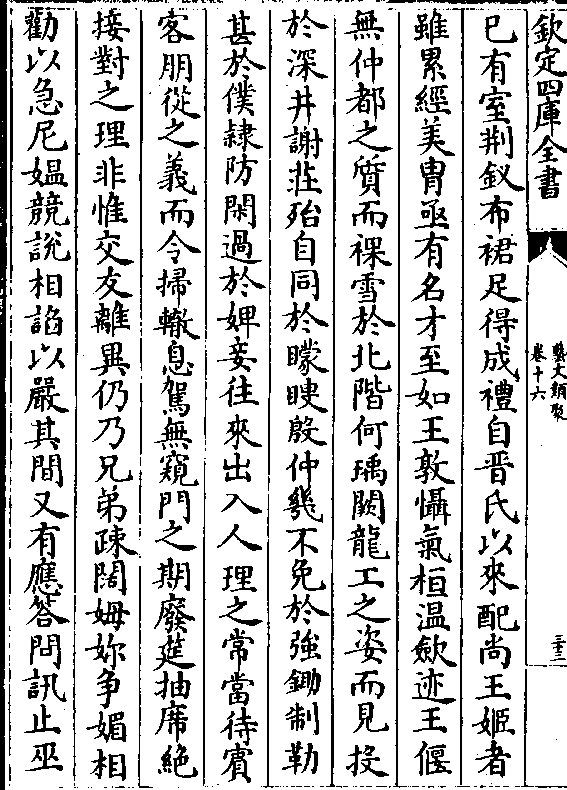 欽定四庫全書
藝文類聚
卷十六
三十三
已有室荆釵布裙足得成禮自晋氏以來配尚王姬者
雖累經美胄亟有名才至如王敦懾氣桓温歛迹王偃
無仲都之質而裸雪於北階何瑀闕龍工之姿而見投
於深井謝莊殆自同於矇瞍殷仲幾不免於強鋤制勒
甚於僕隷防閑過於婢妾往來出入人理之常當待賓
客朋從之義而令掃轍息駕無窺門之期廢筵抽席絶
接對之理非惟交友離異仍乃兄弟疎闊姆妳争媚相
勸以急尼媪競說相諂以嚴其間又有應答問訊止巫